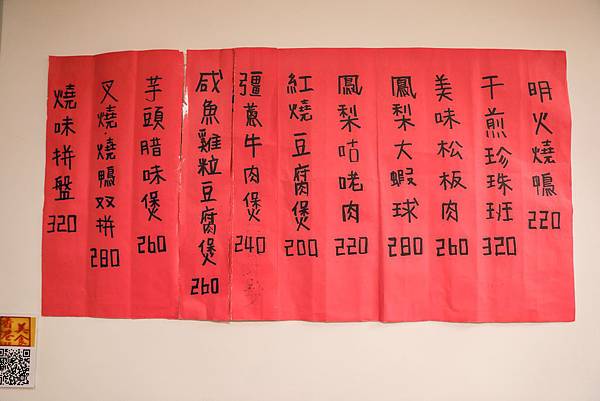 明火燒鴨 220
干煎珍珠班 320
美味松板肉 260
鳳梨大蝦球 280
鳳梨咕咾肉 220
紅燒豆腐煲 200
彊蔥牛肉煲 240
咸魚雞粒豆腐煲 260
芋頭腊味煲 260
叉燒·燒鴨双拼 280
燒味拼盤 320
美食
香港